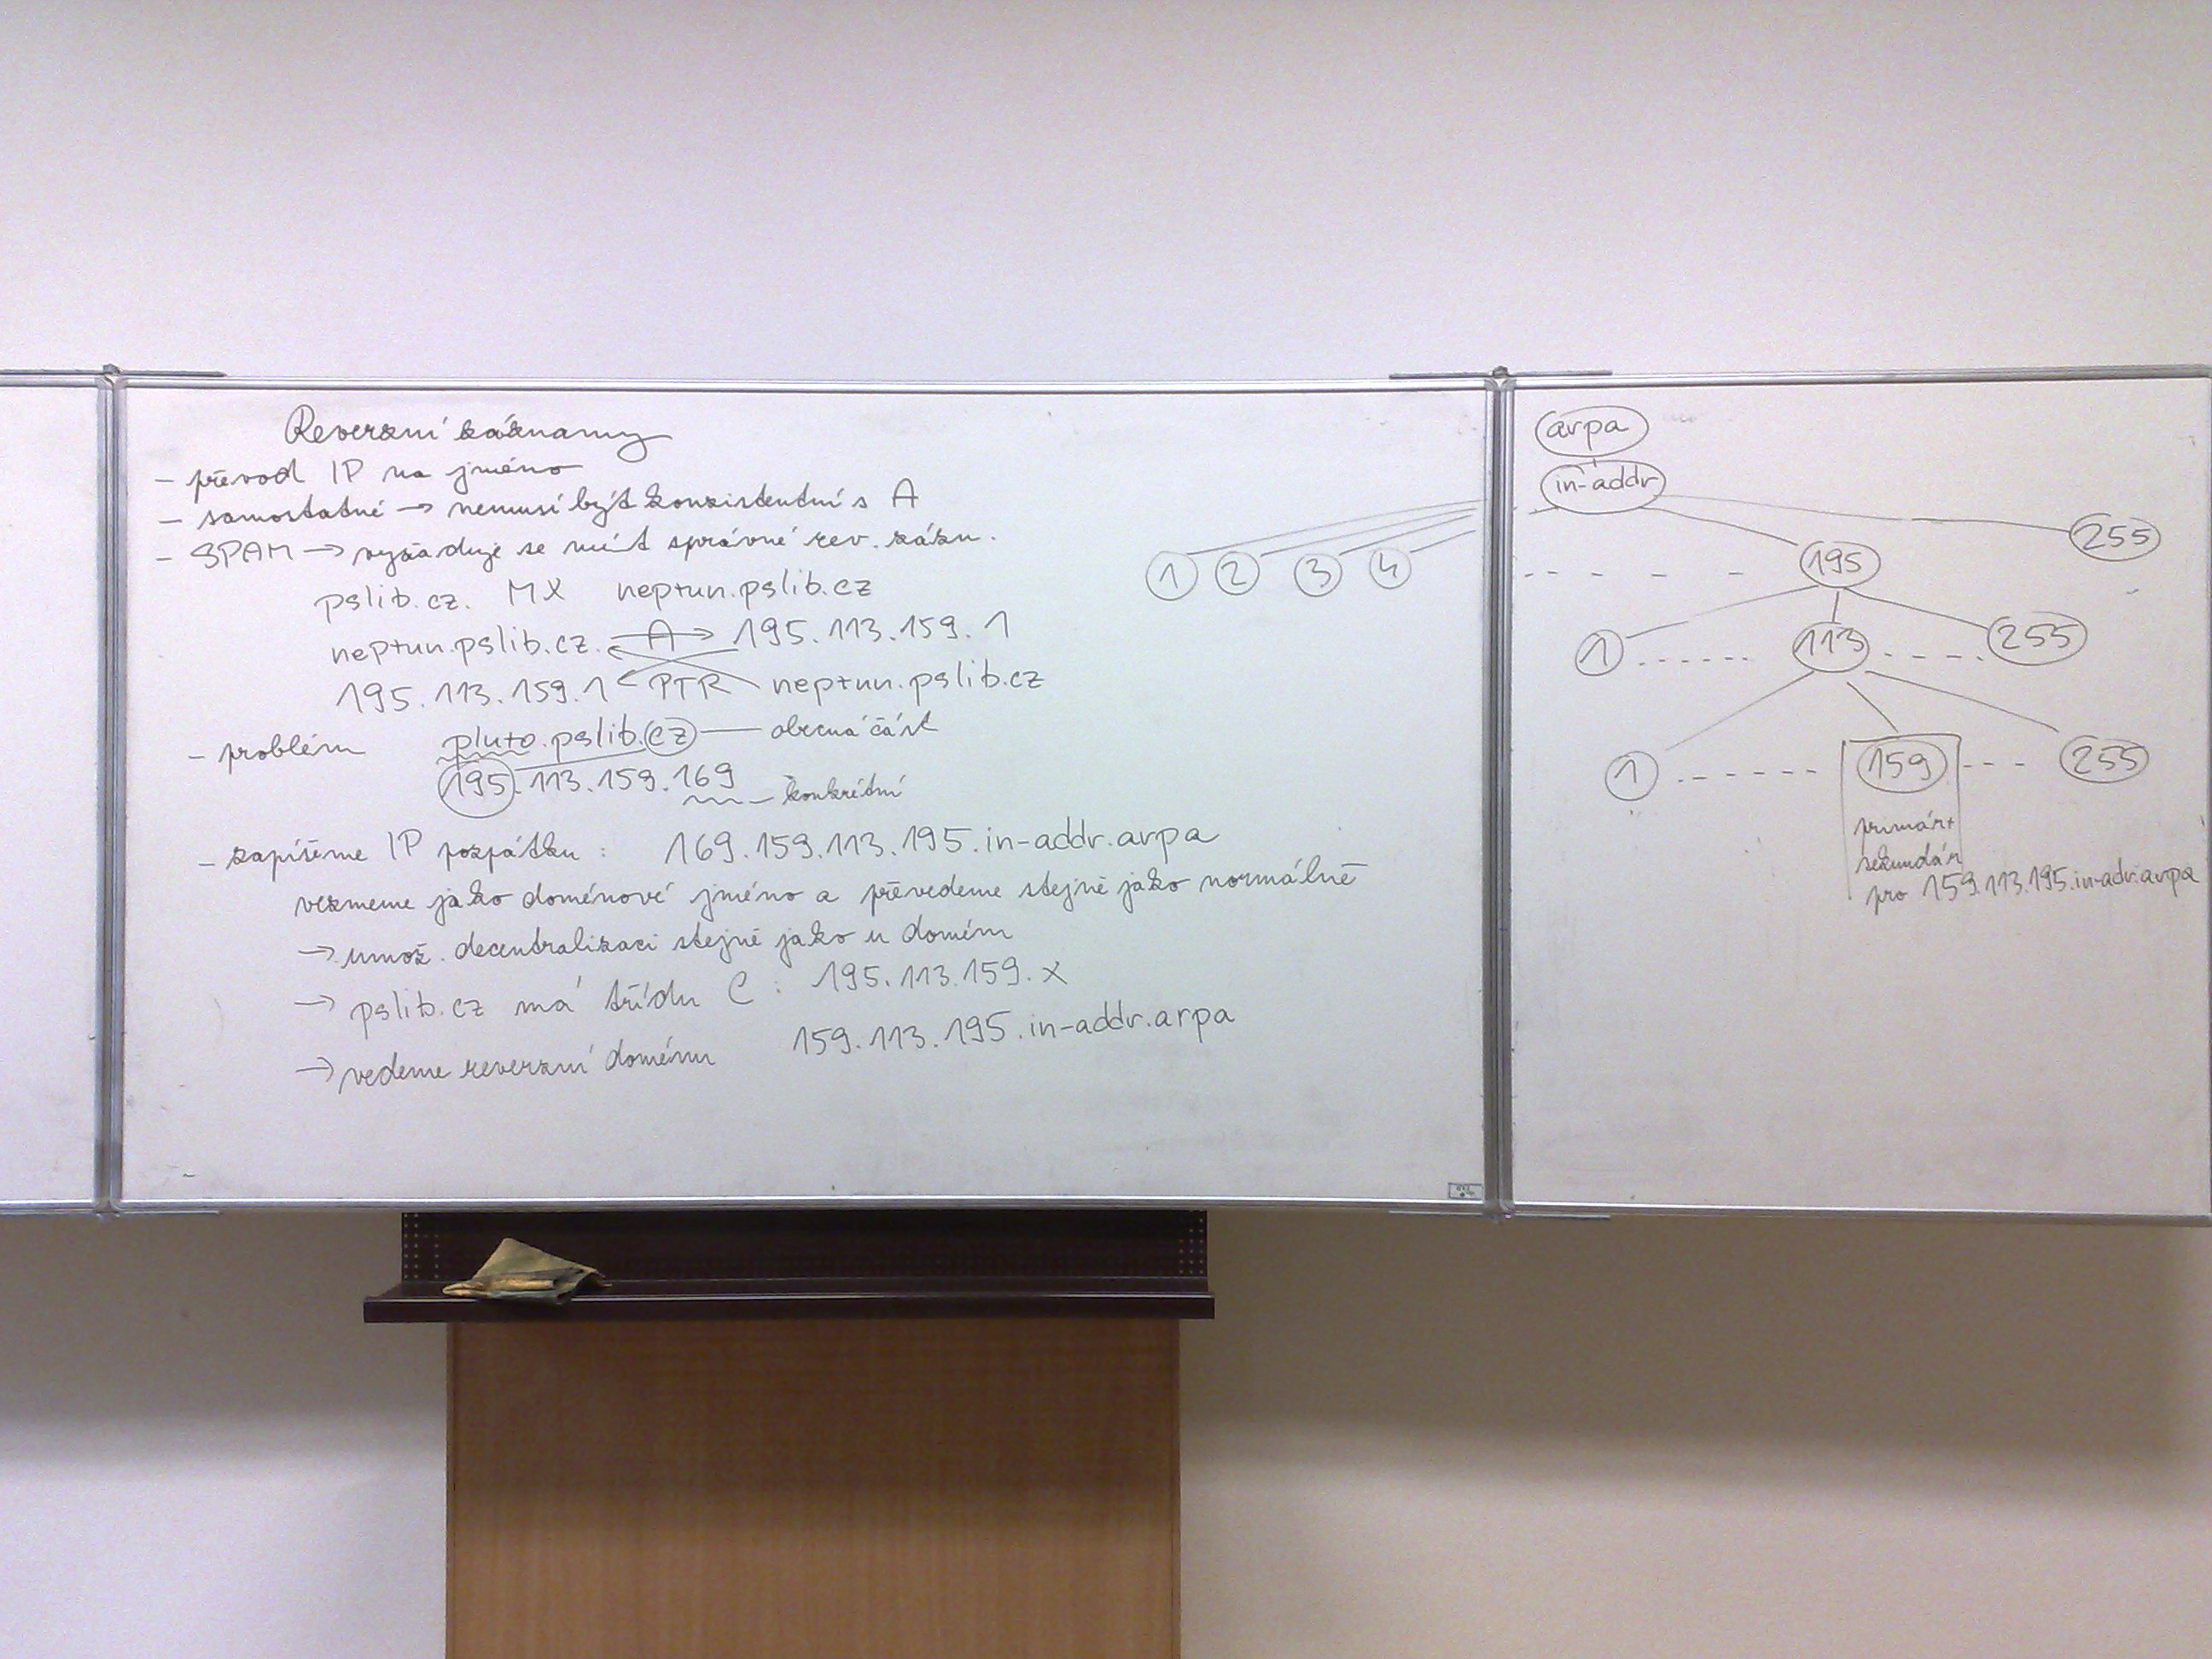 Reverzní záznamy
– převod IP na jméno
– samostatné → nemusí být konzistentní s A
– SPAM → vyžaduje se mít správné rev. zázn.
pslib.cz. MX neptun.pslib.cz
neptun.pslib.cz. A 195.113.159.1
195.113.159.1 PTR neptun.pslib.cz
– problém pluto.pslib.cz — obecná část
195.113.159.169
– konkrétní
– zapíšeme IP pozpátku : 169.159.113.195.in-addr.arpa
vezmeme jako doménové jméno a převedeme stejně jako normálně
→ umož. decentralizaci stejně jako u domén
→ pslib.cz má třídu C : 195.113.159.x
→ vedeme reverzní doménu 159.113.195.in-addr.arpa
arpa
in-addr
1 2 3 4 195 255
1 113 255
1 159 255
primár+
sekundár
pro 159.113.195.in-adr.arpa